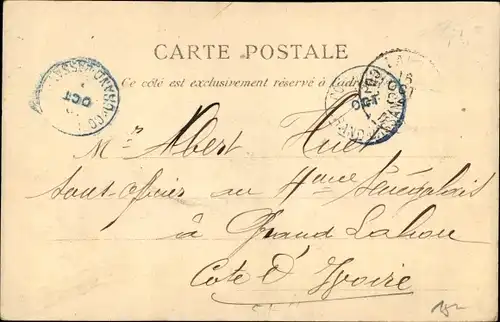 CARTE POSTALE
Ce côté est exclusivement réservé à l'adre
Mr Albert Huet
Sous-officier au 4ème Sénégalais
à Grand Lahou
Côte d'Ivoire
OCT